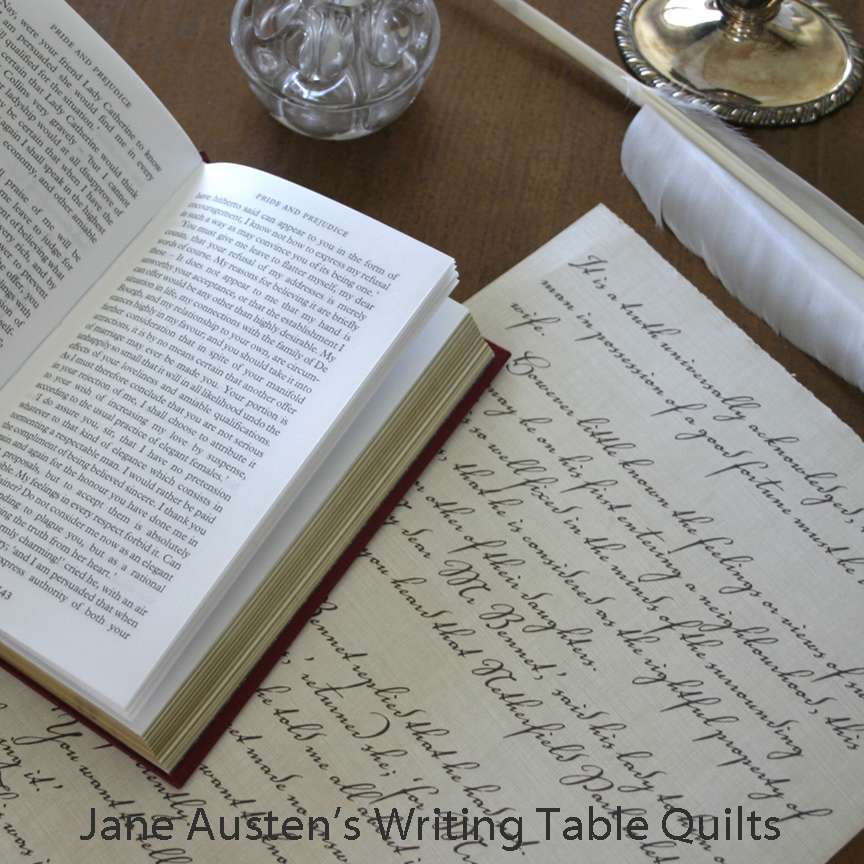 PRIDE AND PREJUDICE
Nay, were your friend Lady Catherine to know
am persuaded she would find me in every
qualified for the situation.'
certain that Lady Catherine would think
Collins very gravely – 'but I cannot
ladyship would at all disapprove of
be certain that when I have the
again I shall speak in the highest
economy, and other amiable
praise of me will be
me leave to judge for
of believing what
very rich, and by
to prevent
the offer, you
with
of
PRIDE AND PREJUDICE
have hitherto said can appear to you in the form of
encouragement, I know not how to express my refusal
in such a way as may convince you of its being one.'
'You must give me leave to flatter myself, my dear
cousin, that your refusal of my addresses is merely
words of course. My reasons for believing it are briefly
these: – It does not appear to me that my hand is
unworthy your acceptance, or that the establishment I
can offer would be any other than highly desirable. My
situation in life, my connections with the family of De
Bourgh, and my relationship to your own, are circum-
stances highly in my favour; and you should take it into
further consideration that in spite of your manifold
attractions, it is by no means certain that another offer
of marriage may ever be made you. Your portion is
unhappily so small that it will in all likelihood undo the
effects of your loveliness and amiable qualifications.
As I must therefore conclude that you are not serious
in your rejection of me, I shall choose to attribute it
to your wish of increasing my love by suspense,
according to the usual practice of elegant females.'
'I do assure you, sir, that I have no pretension
whatever to that kind of elegance which consists in
tormenting a respectable man. I would rather be paid
the compliment of being believed sincere. I thank you
again and again for the honour you have done me in
proposals, but to accept them is absolutely
My feelings in every respect forbid it. Can
Do not consider me now as an elegant
to plague you, but as a rational
the truth from her heart.'
charming!' cried he, with an air
and I am persuaded that when
express authority of both your
43
It is a truth universally acknowledged,
man in possession of a good fortune must be
wife.
However little known the feelings or views of
be on his first entering a neighbourhood, this
so well fixed in the minds of the surrounding
that he is considered as the rightful property of
or other of their daughters.
dear Mr Bennet,' said his lady to
you heard that Netherfield Park
replied that he had
' returned she; 'for
he told me all
made no
'You want to
want
it.'
Jane Austen's Writing Table Quilts